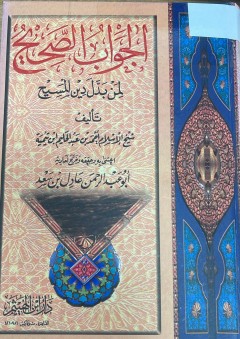 الجواب الصحيح
لمن بدل دين المسيح
تأليف
شيخ الإسلام أحمد بن عبد الحليم ابن تيمية
اعتنى به وحققه وخرج أحاديثه
أبو عبد الرحمن عادل بن سعد
دار ابن الهيثم